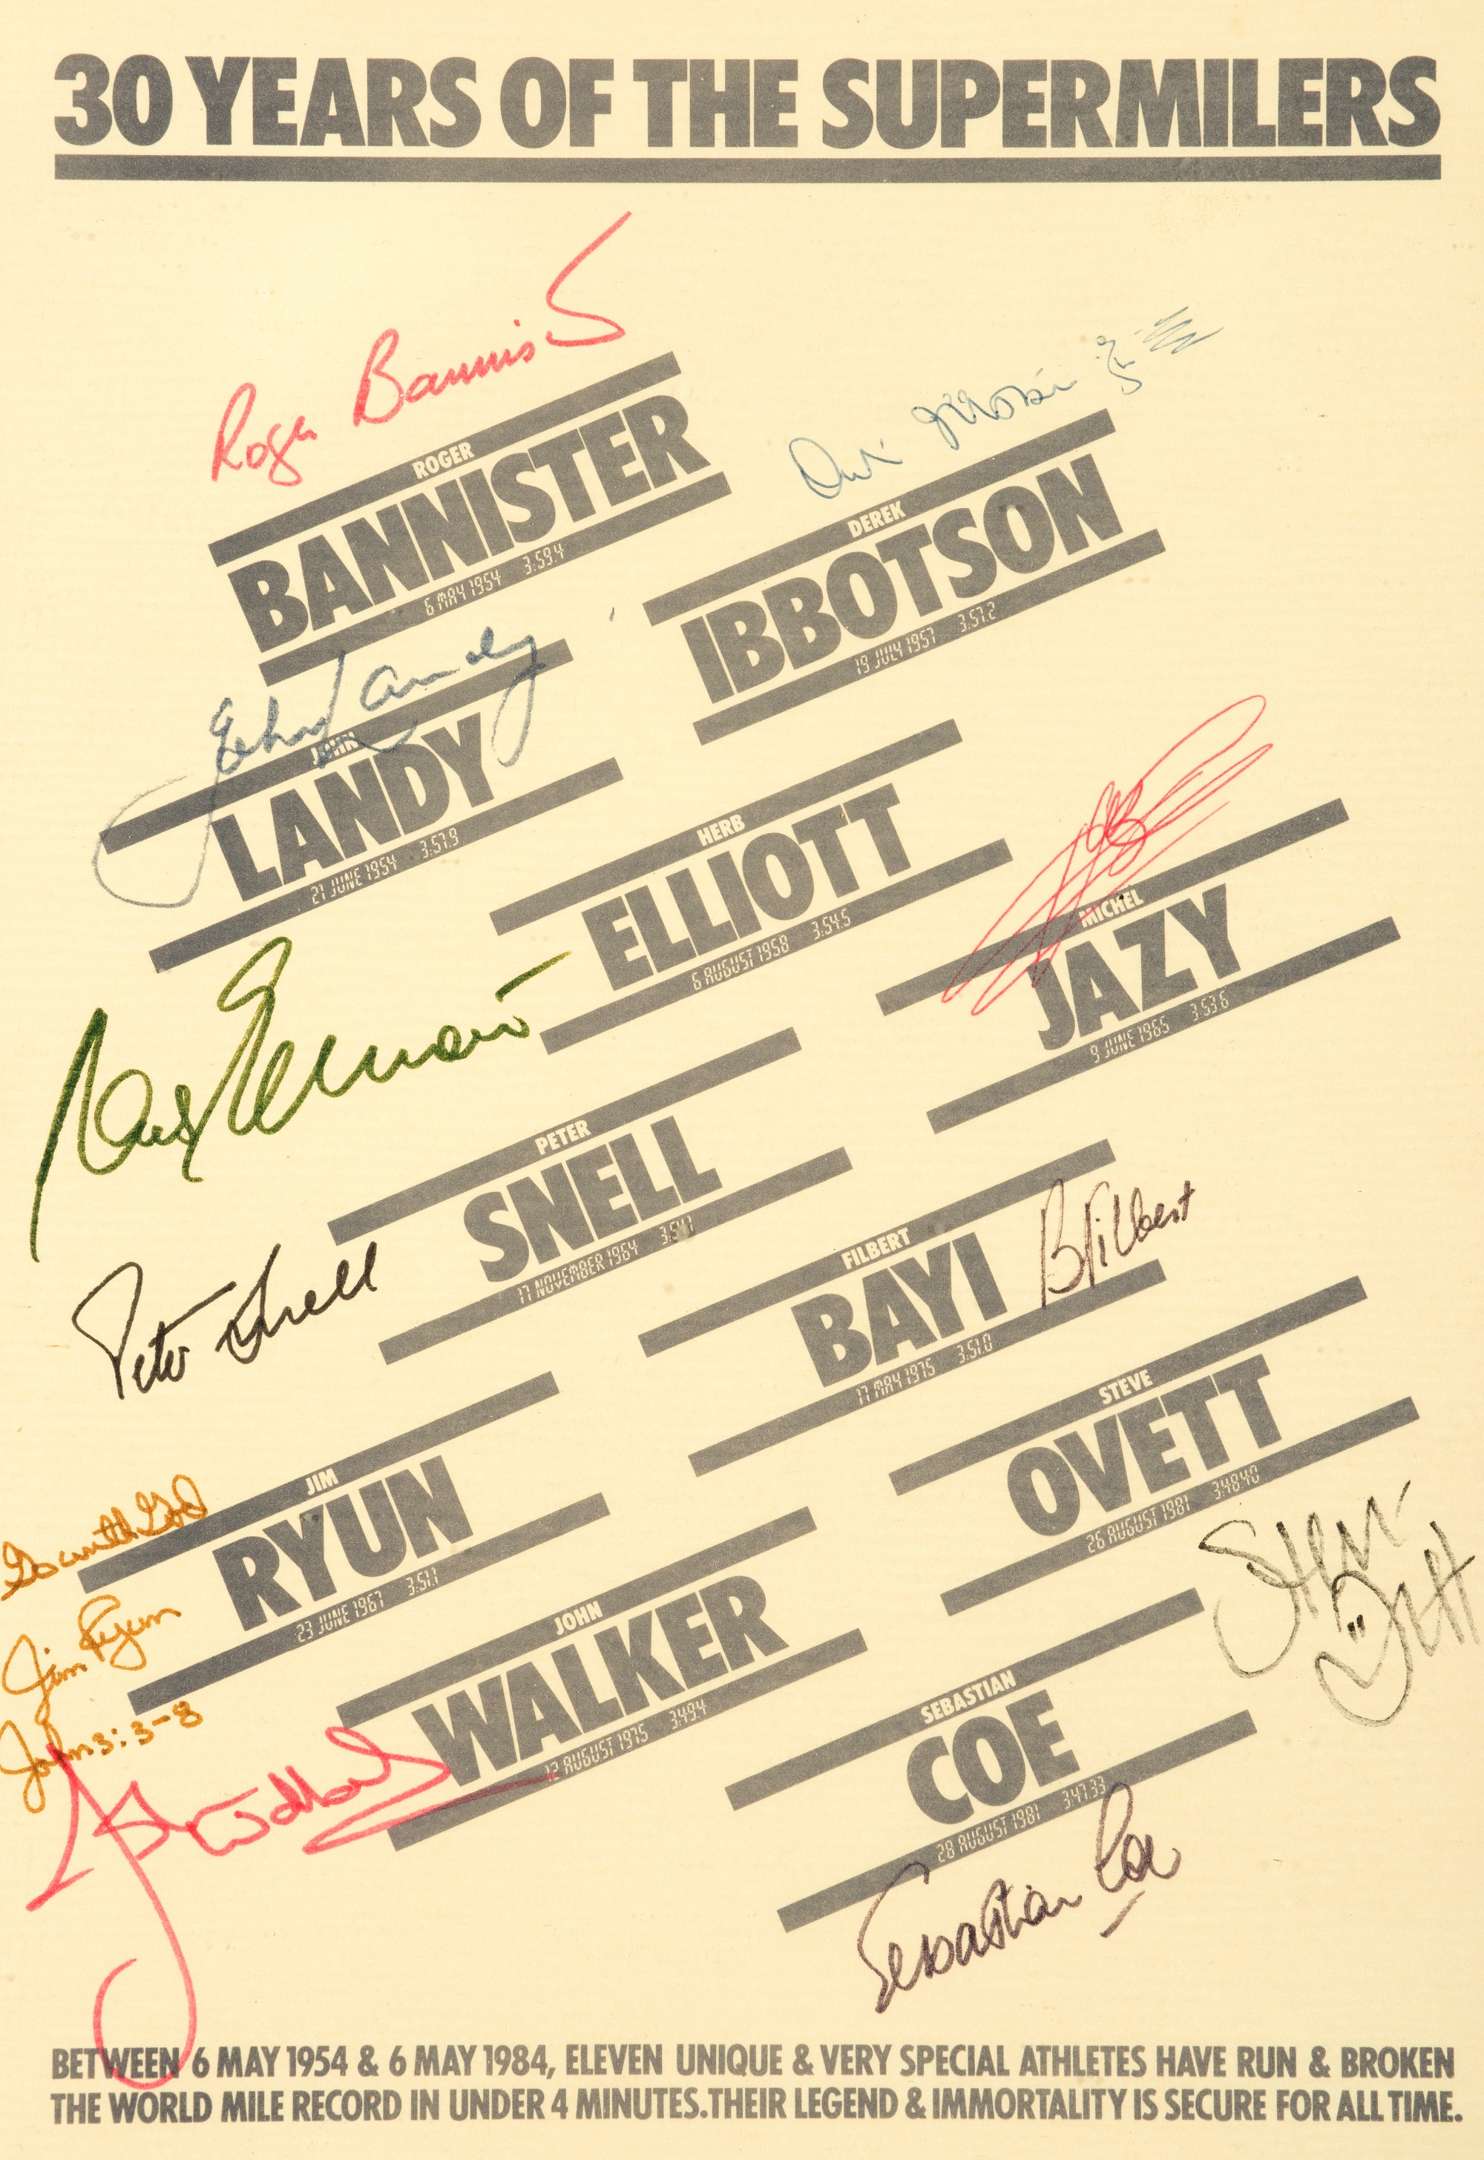 30 YEARS OF THE SUPERMILERS
Roger Bannister
ROGER
BANNISTER
6 MAY 1954 3:59.4
DEREK
IBBOTSON
19 JULY 1957 3:57.2
John Landy
JOHN
LANDY
21 JUNE 1954 3:57.9
HERB
ELLIOTT
6 AUGUST 1958 3:54.5
MICHEL
JAZY
9 JUNE 1965 3:53.6
PETER
SNELL
17 NOVEMBER 1964 3:54.1
Peter Snell
FILBERT
BAYI
17 MAY 1975 3:51.0
B Filbert
STEVE
OVETT
26 AUGUST 1981 3:48.40
Steve Ovett
JIM
RYUN
23 JUNE 1967 3:51.1
Go with God
Jim Ryun
John 3:3-8
JOHN
WALKER
12 AUGUST 1975 3:49.4
SEBASTIAN
COE
28 AUGUST 1981 3:47.33
Sebastian Coe
BETWEEN 6 MAY 1954 & 6 MAY 1984, ELEVEN UNIQUE & VERY SPECIAL ATHLETES HAVE RUN & BROKEN
THE WORLD MILE RECORD IN UNDER 4 MINUTES.THEIR LEGEND & IMMORTALITY IS SECURE FOR ALL TIME.